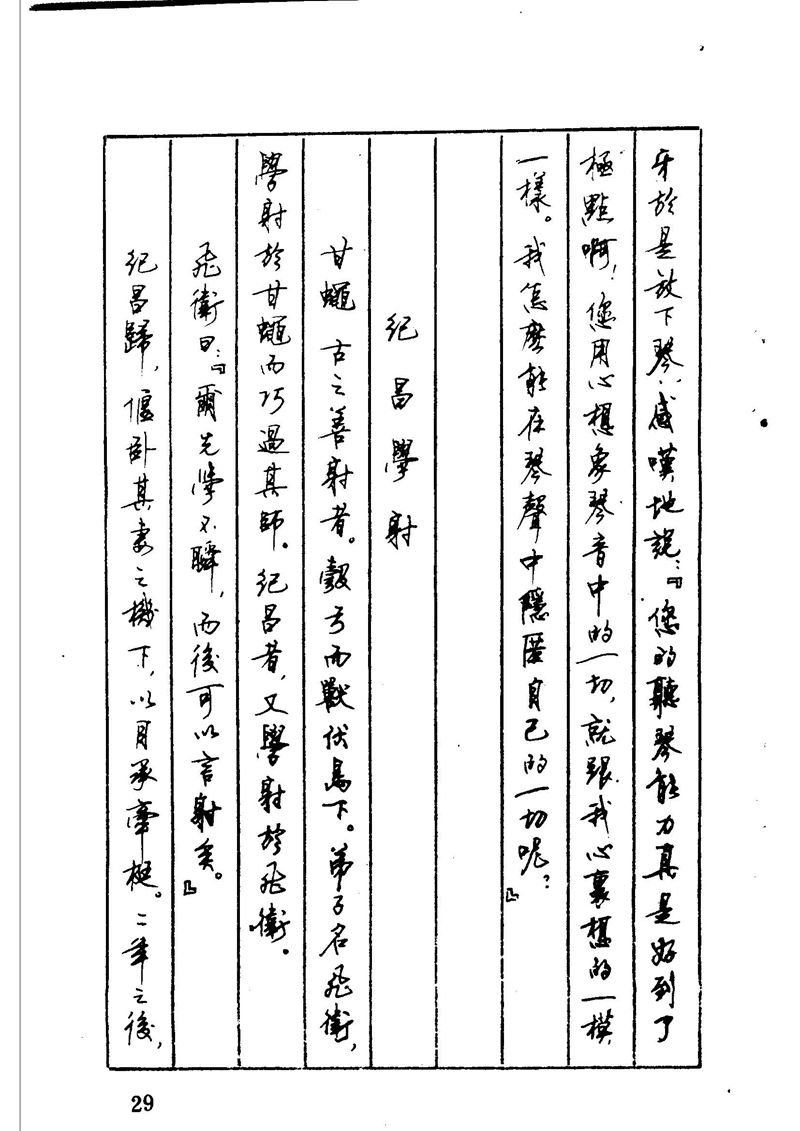 牙於是放下琴，感嘆地說：『您的聽琴能力真是好到了
極點啊！您用心想象琴音中的一切，就跟我心裏想的一模
一樣。我怎麼能在琴聲中隱匿自己的一切呢？』
紀昌學射
甘蠅 古之善射者。彀弓而獸伏鳥下。弟子名飛衛，
學射於甘蠅而巧過其師。紀昌者，又學射於飛衛。
飛衛曰：『爾先學不瞬，而後可以言射矣。』
紀昌歸，偃卧其妻之機下，以目承牽挺。二年之後，
29